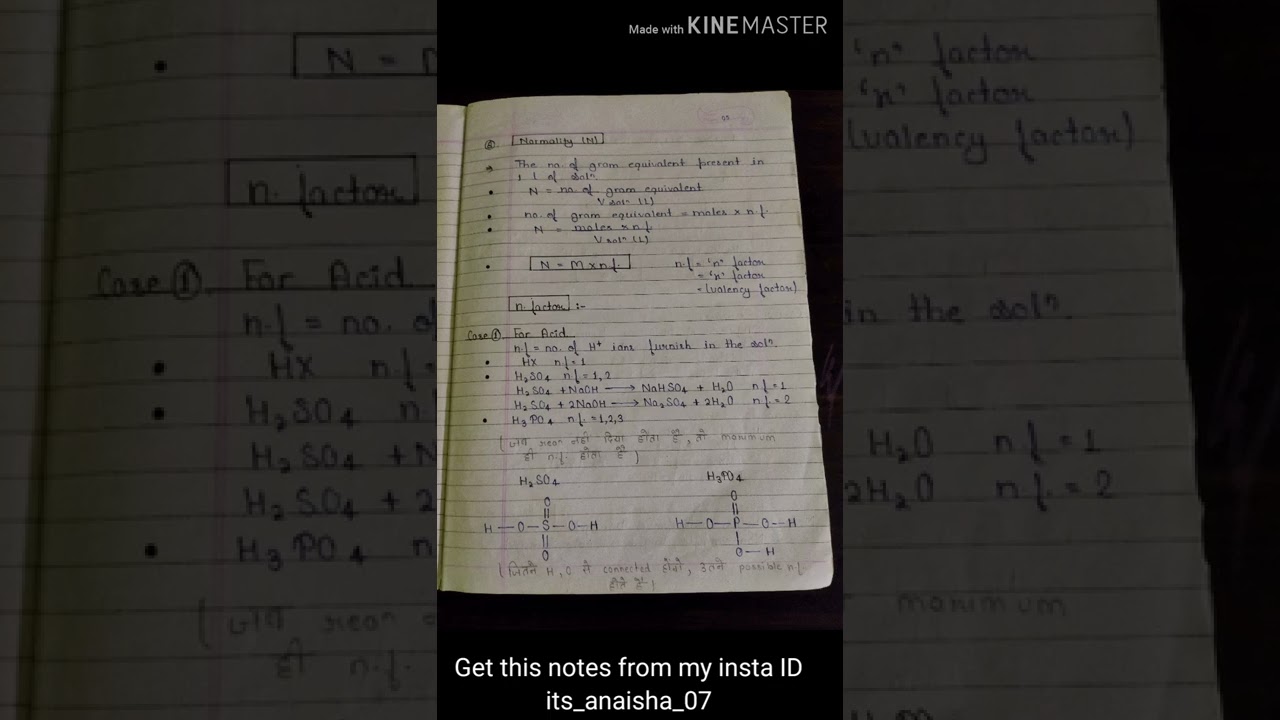 Made with KINEMASTER
⑤ Normality (N)
→ The no. of gram equivalent present in
1 L of solⁿ.
• N = no. of gram equivalent
V solⁿ (L)
• no. of gram equivalent = moles × n.f.
• N = moles × n.f.
V solⁿ (L)
• N = M × n.f. n.f. = 'n' factor
= 'x' factor
= (valency factor)
n. factor :-
Case ① For Acid
n.f = no. of H⁺ ions furnish in the solⁿ.
• HX n.f = 1
• H₂SO₄ n.f = 1, 2
H₂SO₄ + NaOH → NaHSO₄ + H₂O n.f = 1
H₂SO₄ + 2NaOH → Na₂SO₄ + 2H₂O n.f. = 2
• H₃PO₄ n.f. = 1,2,3
(जब reaⁿ नहीं दिया होता है, तो maximum
ही n.f. होता है)
H₂SO₄ H₃PO₄
O O
H—O—S—O—H H—O—P—O—H
O O—H
(जितने H, O से connected होंगे, उतने possible n.f.
होते हैं)
Get this notes from my insta ID
its_anaisha_07